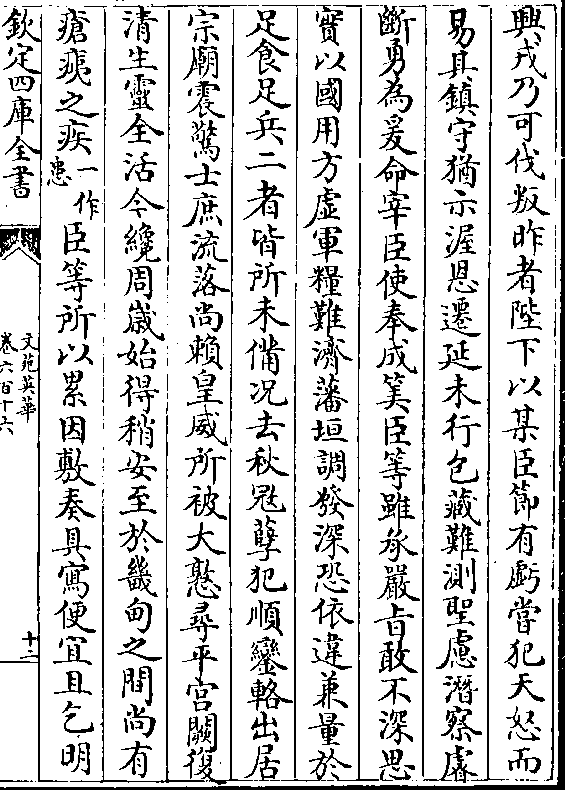 興戎乃可伐叛昨者陛下以某臣節有虧當犯天怒而
易其鎮守猶示渥恩遷延未行包藏難測聖慮潛察睿
斷勇為爰命宰臣使奉成筭臣等雖承嚴旨敢不深思
實以國用方虛軍糧難濟藩垣調發深恐依違兼量於
足食足兵二者皆所未備况去秋冦孽犯順鑾輅出居
宗廟震驚士庶流落尚賴皇威所被大憝尋平宫闕復
清生靈全活今纔周歲始得稍安至於畿甸之間尚有
瘡痍之疾一作患臣等所以累因敷奏具寫便宜且乞明
欽定四庫全書
文苑英華
卷六百十六
十二